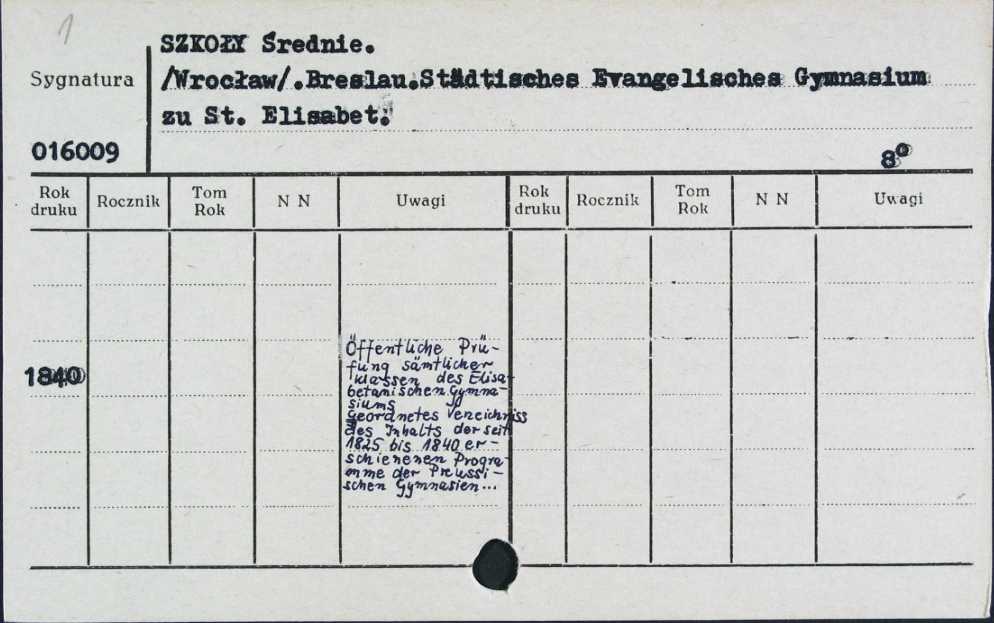 1
SZKOŁY Średnie.
Sygnatura
/Wrocław/.Breslau.Städtisches Evangelisches Gymnasium
zu St. Elisabet.
016009
8°
Rok druku Rocznik Tom Rok N N Uwagi Rok druku Rocznik Tom Rok N N Uwagi
1840
Öffentliche Prü-
fung sämtlicher
klassen des Elisa-
betanischen Gymna-
siums
Geordnetes Verzeichniss
des Inhalts der seit
1825 bis 1840 er-
schienenen Progra-
mme der Preussi-
schen Gymnasien...